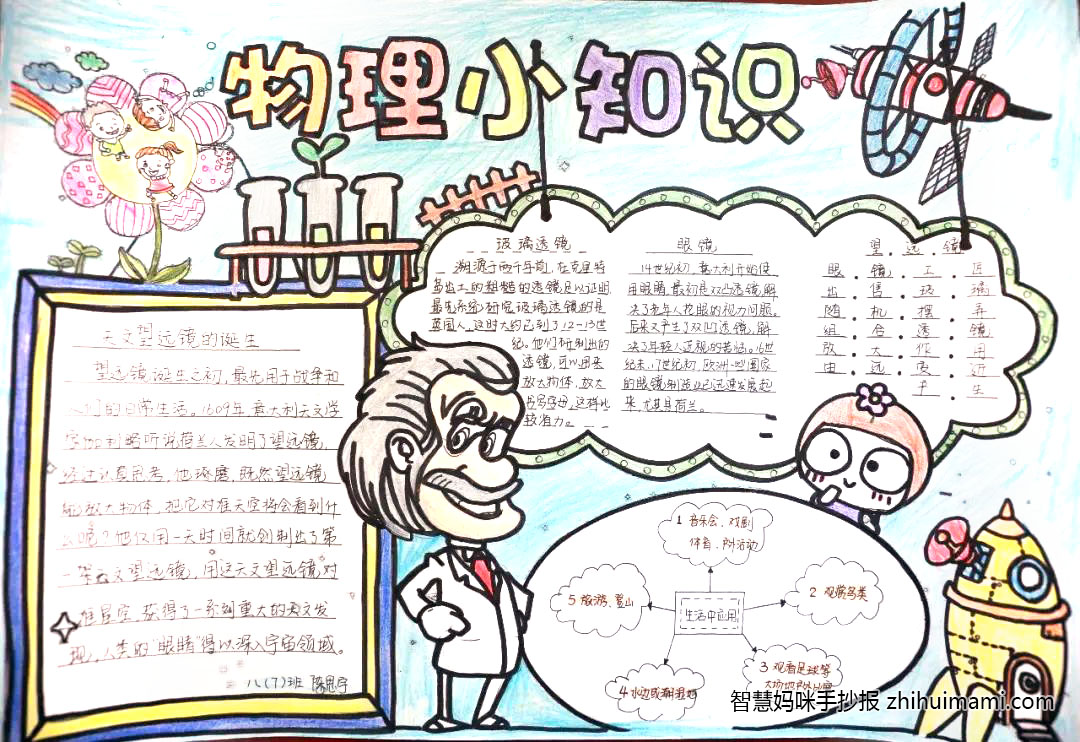 物理小知识
玻璃透镜
溯源于两千年前,在克里特
岛出土的粗糙的透镜足以证明
最先系统研究玻璃透镜的是
英国人,这时大约已到了12-13世
纪。他们研制出的
透镜,可以用来
放大物体,放大
书写字母,这样比
较省力。
眼镜
14世纪初,意大利开始使
用眼睛,最初是双凸透镜,解
决了老年人花眼的视力问题。
后来又产生了双凹透镜,解
决了年轻人近视的苦恼。16世
纪末、17世纪初,欧洲一些国家
的眼镜制造业已迅速发展起
来,尤其是荷兰。
望远镜
眼镜工匠
出售玻璃
随机摆弄
组合透镜
放大作用
由远变近
于生
天文望远镜的诞生
望远镜诞生之初,最先用于战争和
人们的日常生活。1609年,意大利天文学
家伽利略听说荷兰人发明了望远镜,
经过认真思考,他琢磨,既然望远镜
能放大物体,把它对准天空将会看到什
么呢?他仅用一天时间就创制出了第
一架天文望远镜,用这天文望远镜对
准星空,获得了一系列重大的天文发
现,人类的"眼睛"得以深入宇宙领域。
八(7)班 陈思宇
1 音乐会、戏剧
体育、户外活动
2 观赏鸟类
生活中应用
5 旅游、登山
3 观看足球等
4 水边或潮湿
智慧妈咪手抄报 zhihuimami.com